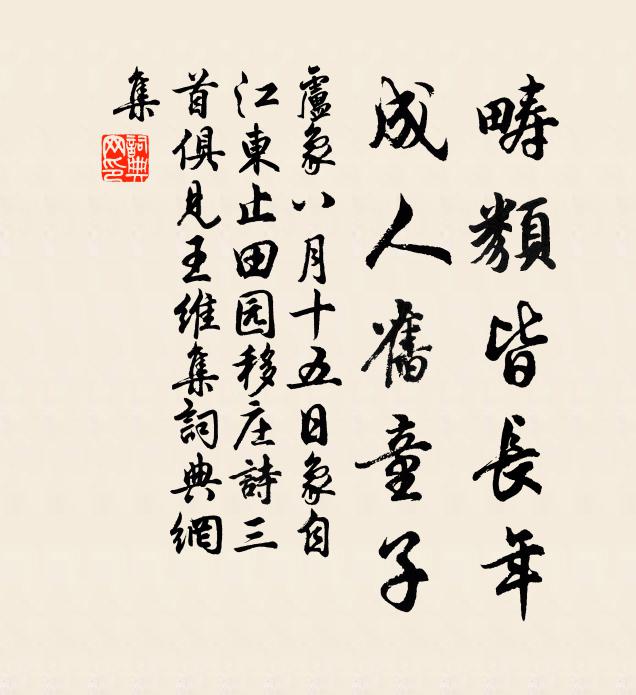 疇類皆長年
成人舊童子
盧象八月十五日象自
江東止田园移庄詩三
首俱見王維集詞典網
集
詞典網印